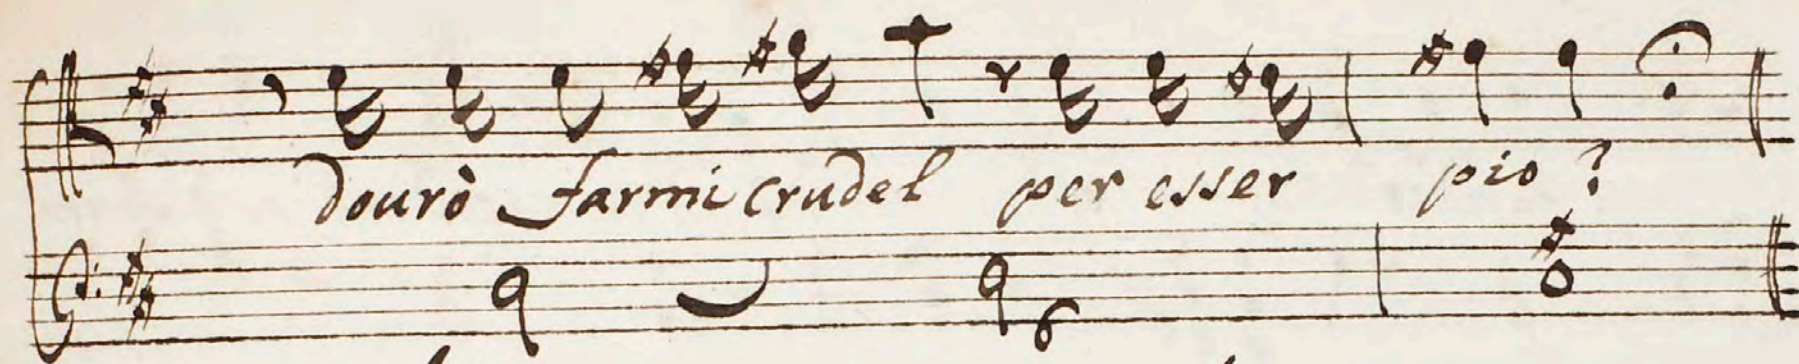 dourò farmi crudel per esser pio?
6